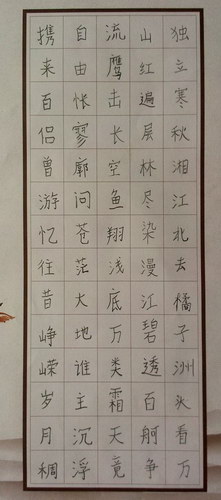 独立寒秋湘江北去橘子洲头看万
山红遍层林尽染漫江碧透百舸争
流鹰击长空鱼翔浅底万类霜天竟
自由怅寥廓问苍茫大地谁主沉浮
携来百侣曾游忆往昔峥嵘岁月稠